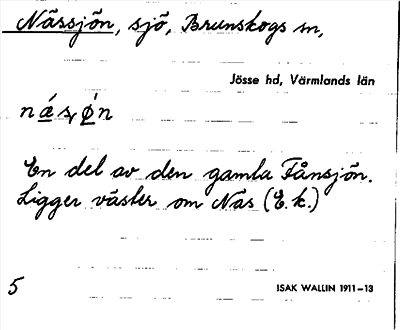 Nässjön, sjö, Brunskogs sn,
Jösse hd, Värmlands län
næ´s,ø`n
En del av den gamla Fånsjön.
Ligger väster om Näs (E.k.)
5
ISAK WALLIN 1911–13